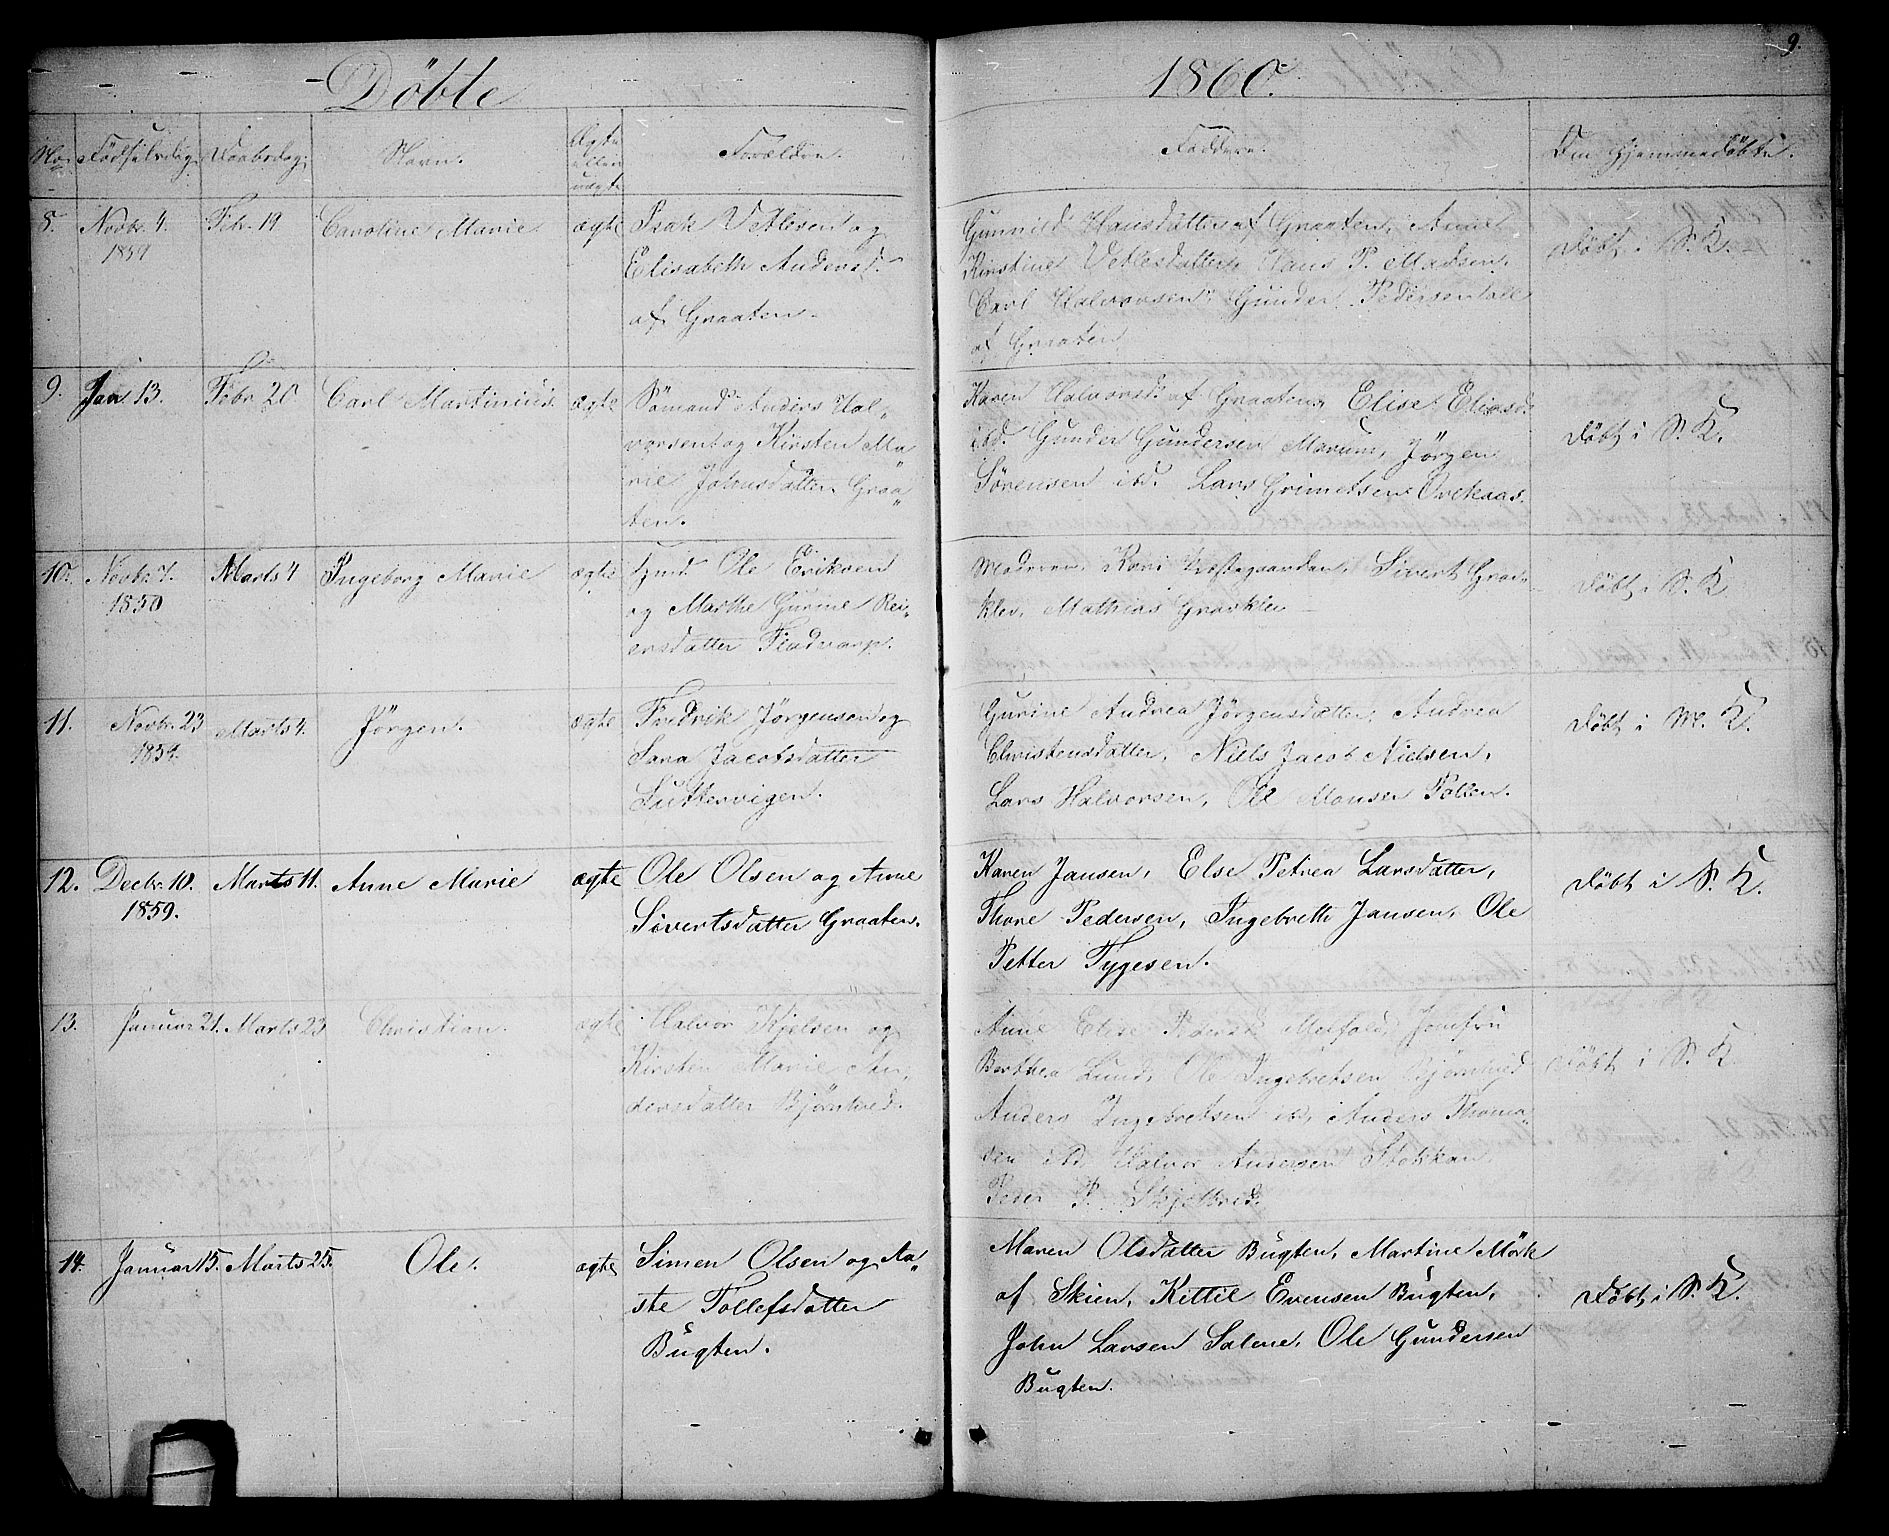 9.
Döbte
1860.
No.
Födselsdag.
Daabsdag.
Navn.
Ægte
eller
uægte
Forældre.
Faddere.
Om hjemmedöbt.
8.
Novbr. 4.
1859
Febr. 19
Caroline Marie
ægte
Isak Vetlesen og
Elisabeth Andersd.
af Graaten.
Gunnild Hansdatter af Graaten, Anne
Kirstine Vetlesdatter, Hans P. Madsen.
Carl Halvorsen, Gunder Pedersen alle
af Graaten
döbt i S. K.
9.
Jan. 13.
Febr. 20
Carl Martinius.
ægte
Sömand Anders Hal„
vorsen og Kirsten Ma
rie Johnsdatter Graa„
ten.
Karen Halvorsd: af Graaten, Elise Eliasd:
ibd. Gunder Gundersen Marum, Jörgen
Sörensen ibd. Lars Grimetsen Ovekaas.
döbt i S. K.
10.
Novbr. 7.
1850
Marts 4
Ingeborg Marie
ægte
Ole Eriksen
og Marthe Gurine Rei„
ersdatter
Moderen, Kari Sivert Graa„
klev, Mathias Graaklev
döbt i S. K.
11.
Novbr. 23
1859.
Marts 4.
Jörgen.
ægte
Fredrik Jörgensen og
Sara Jacobsdatter
Luttervigen.
Gurine Andrea Jörgensdatter, Andrea
Christensdatter, Niels Jacob Nielsen,
Lars Halvorsen, Ole Monsen Pollen.
döbt i M. K.
12.
Decbr. 10.
1859.
Marts 11.
Anne Marie
ægte
Ole Olsen og Anne
Sivertsdatter Graaten.
Karen Jansen, Else Petrea Larsdatter,
Thore Pedersen, Ingebreth Jansen, Ole
Petter Tygesen.
döbt i S. K.
13.
Januar 21.
Marts 23
Christian.
ægte
Halvor Kjelsen og
Kirsten Marie An„
dersdatter Björntved.
Anne Elise Pedersd. Melfald, Jomfru
Berthea Lund, Ole Ingebretsen Björntved
Anders Ingebretsen ibd, Anders Thoma„
sen ibd. Halvor Andersen Stokkan,
Peder P. Skjeltved.
döbt i S. K.
14.
Januar 15.
Marts 25.
Ole.
ægte
Simen Olsen og Aa„
ste Tollefsdatter
Bugten.
Maren Olsdatter Bugten, Martine Mörk
af Skien, Kittil Evensen Bugten,
John Larsen Salene, Ole Gundersen
Bugten.
döbt i S. K.